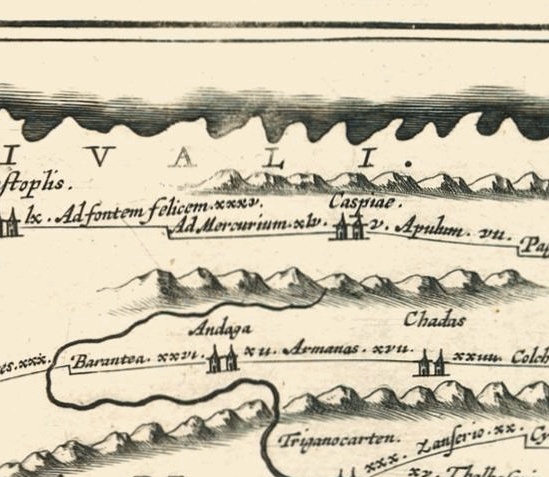 I V A L I .
stoplis.
lx. Ad fontem felicem. xxxv.
Caspiae.
Ad Mercurium. xlv. v. Apulum. vii. Pap
Andaga
Chadas
es. xxx. Barantea. xxvi. xu. Armanas. xvii. xxiiii. Colch
Triganocarten.
xxx. Lanserio. xx. Cy
xv.